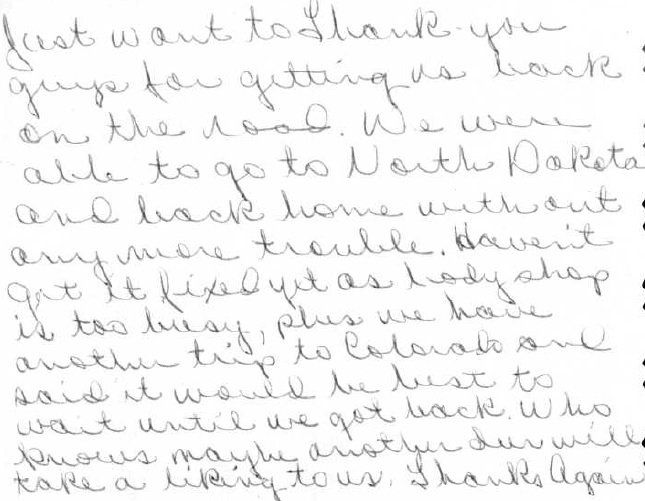 Just want to Thank you
guys for getting us back
on the road. We were
able to go to North Dakota
and back home without
any more trouble. Haven't
got it fixed yet as body shop
is too busy, plus we have
another trip to Colorado and
said it would be best to
wait until we got back. Who
knows maybe another deer will
take a liking to us. Thanks Again